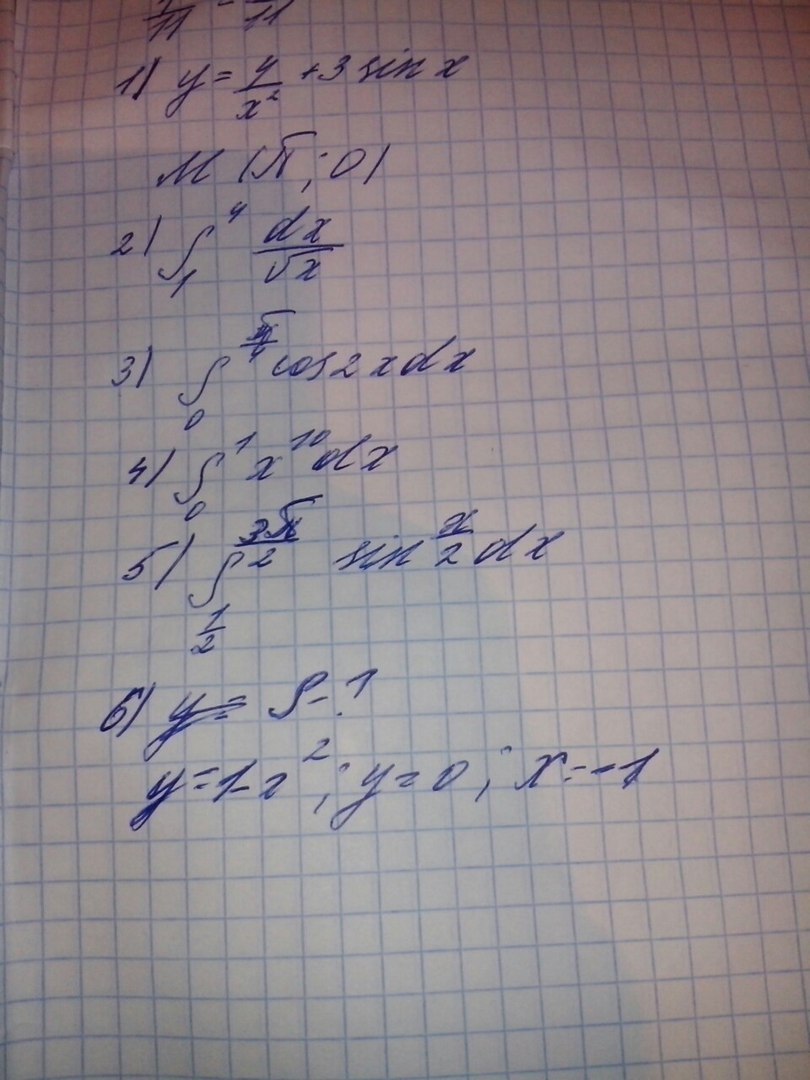 11 - 11
1) y = 4/x² + 3 sin x
M (π; 0)
2) ∫₁⁴ dx/√x
3) ∫₀^(π/4) cos 2x dx
4) ∫₀¹ x¹⁰ dx
5) ∫_(1/2)^(3π/2) sin x/2 dx
6) S - ?
y = 1 - x²; y = 0; x = -1